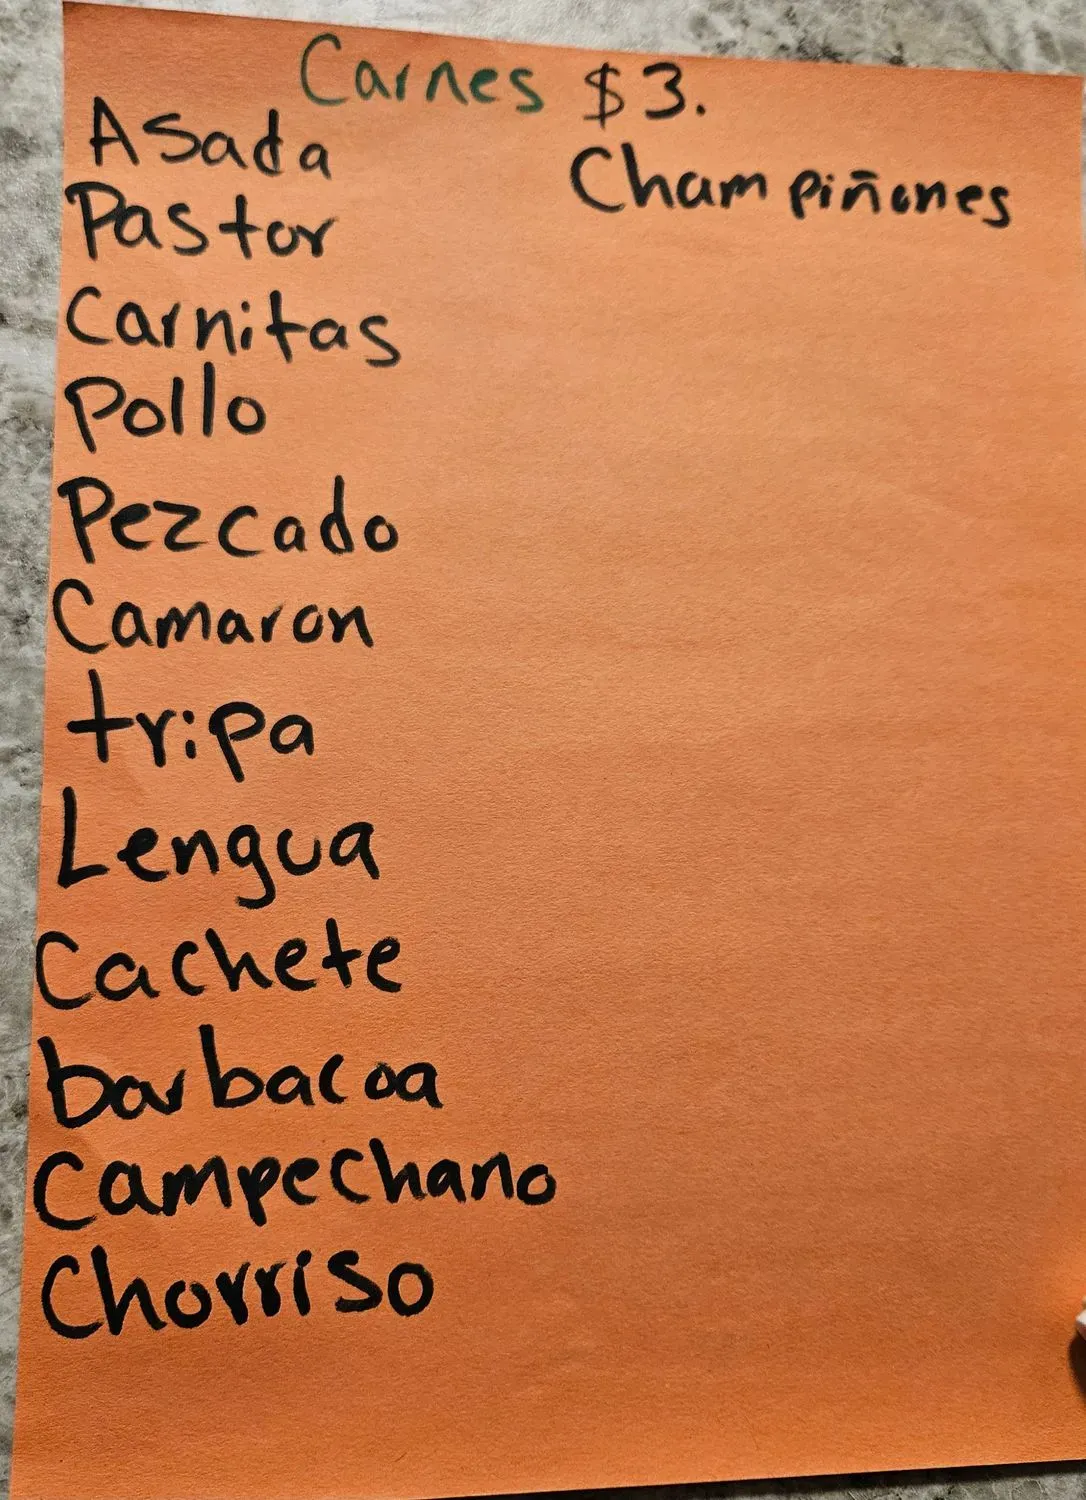 Carnes $3.
Asada
Champiñones
Pastor
Carnitas
Pollo
Pezcado
Camaron
tripa
Lengua
Cachete
barbacoa
Campechano
Chorriso